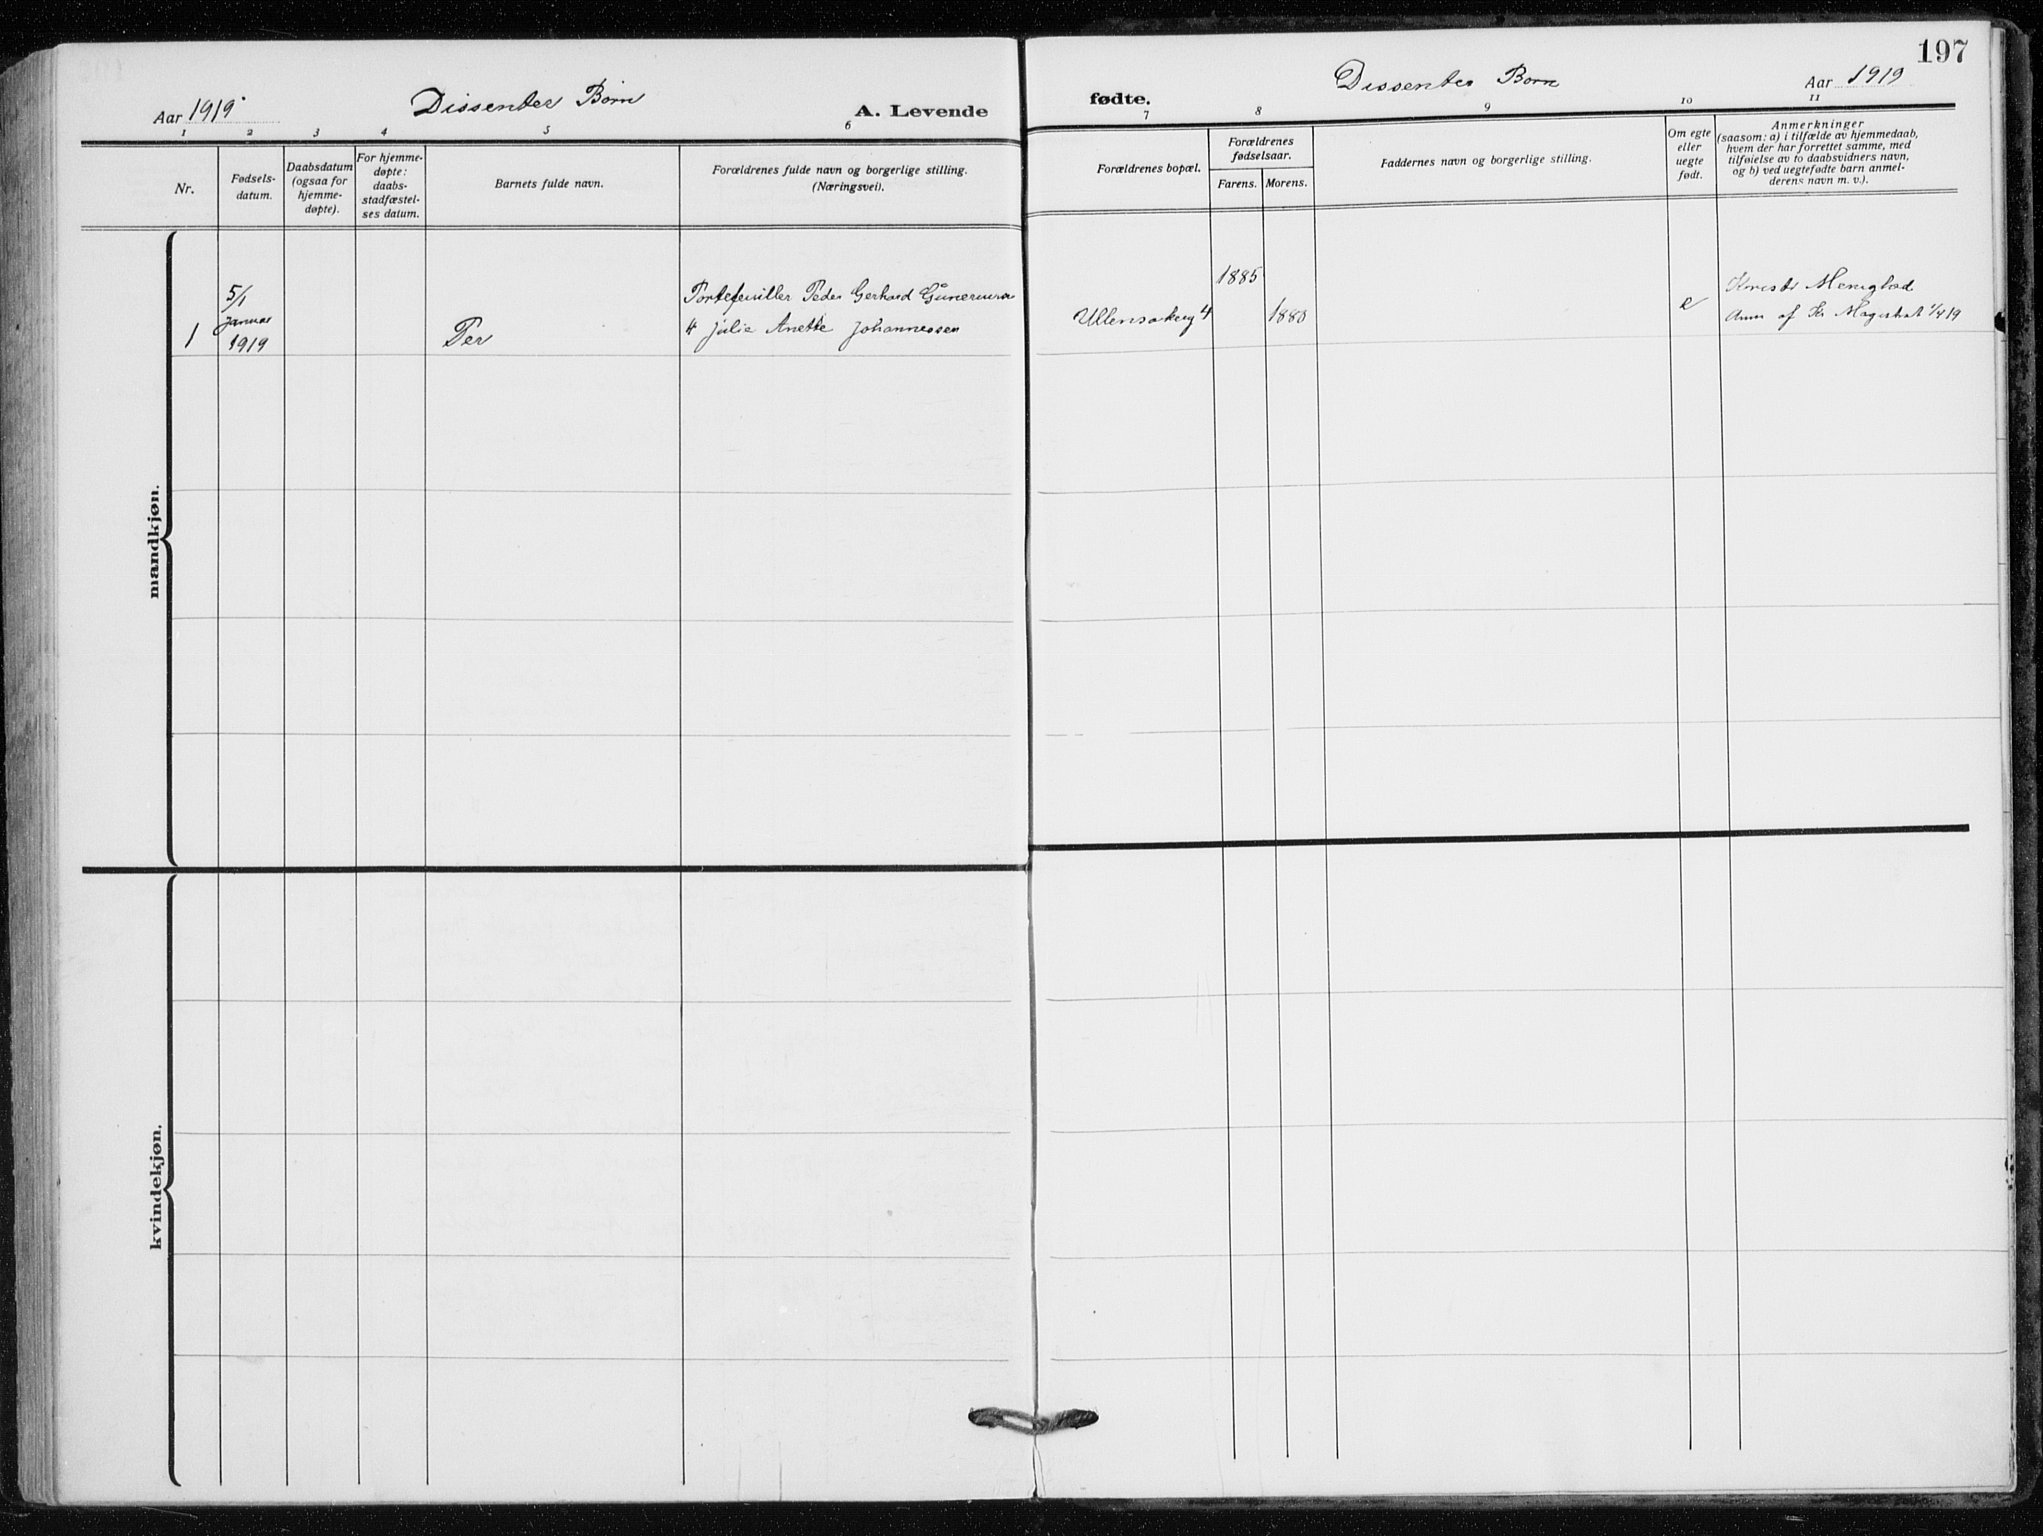 197
Aar 1919
Dissenter Børn
A. Levende
fødte.
Dissenter Børn
Aar 1919
1 2 3 4 5 6
7 8 9 10 11
Nr.
Fødsels-
datum.
Daabsdatum
(ogsaa for
hjemme-
døpte).
For hjemme-
døpte:
daabs-
stadfæstel-
ses datum.
Barnets fulde navn.
Forældrenes fulde navn og borgerlige stilling.
(Næringsvei).
Forældrenes bopæl.
Forældrenes
fødselsaar.
Farens.
Morens.
Faddernes navn og borgerlige stilling.
Om egte
eller
uegte
født.
Anmerkninger
(saasom: a) i tilfælde av hjemmedaab,
hvem der har forrettet samme, med
tilføielse av to daabsvidners navn,
og b) ved uegtefødte barn anmel-
derens navn m. v.).
mandkjøn.
1
5/1
Januar
1919
Per
Portefeuiller Peder Gerhard
Julie Anette Johannessen
Ullensakerg 4
1885
1880
e
Menighed
Anm af Kr Magistrat
kvindekjøn.